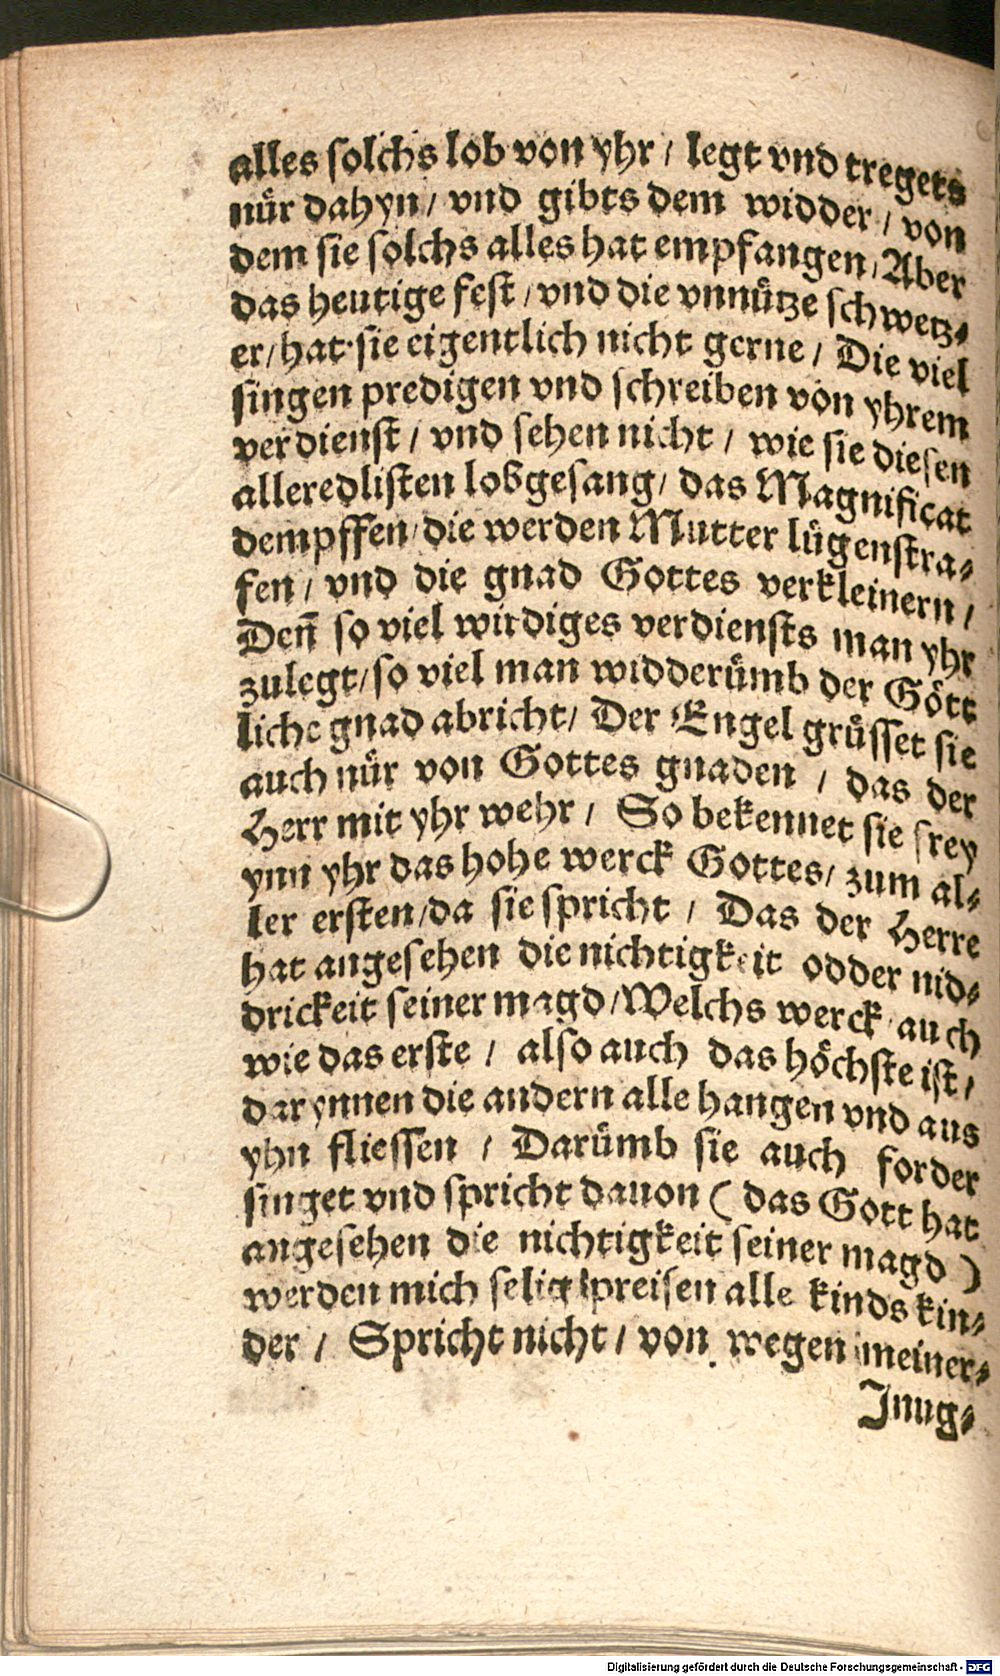 alles solchs lob von yhr / legt vnd tregets
nür dahyn / vnd gibts dem widder / von
dem sie solchs alles hat empfangen / Aber
das heutige fest / vnd die vnnütze schwetz⸗
er / hat sie eigentlich nicht gerne / Die viel
singen predigen vnd schreiben von yhrem
verdienst / vnd sehen nicht / wie sie diesen
alleredlisten lobgesang / das Magnificat
dempffen / die werden Mutter lügenstra⸗
fen / vnd die gnad Gottes verkleinern /
Den̄ so viel wirdiges verdiensts man yhr
zulegt / so viel man widderümb der Gött
liche gnad abricht / Der Engel grüsset sie
auch nür von Gottes gnaden / das der
Herr mit yhr wehr / So bekennet sie frey
ynn yhr das hohe werck Gottes / zum al⸗
ler ersten / da sie spricht / Das der Herre
hat angesehen die nichtigkeit odder nid⸗
drickeit seiner magd / Welchs werck auch
wie das erste / also auch das höchste ist /
darynnen die andern alle hangen vnd aus
yhn fliessen / Darümb sie auch forder
singet vnd spricht dauon ( das Gott hat
angesehen die nichtigkeit seiner magd )
werden mich selig preisen alle kinds kin⸗
der / Spricht nicht / von wegen meiner⸗
Jnug⸗
Digitalisierung gefördert durch die Deutsche Forschungsgemeinschaft - DFG